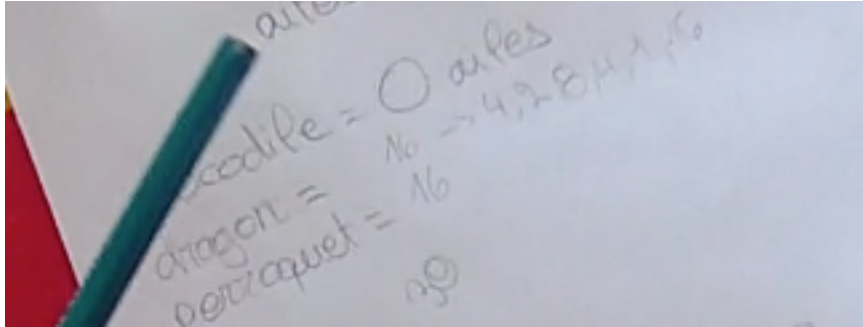 ocodile = 0 ailes
dragon = 16 → 4, 2 8, 4, 1, 6
perroquet = 16
30